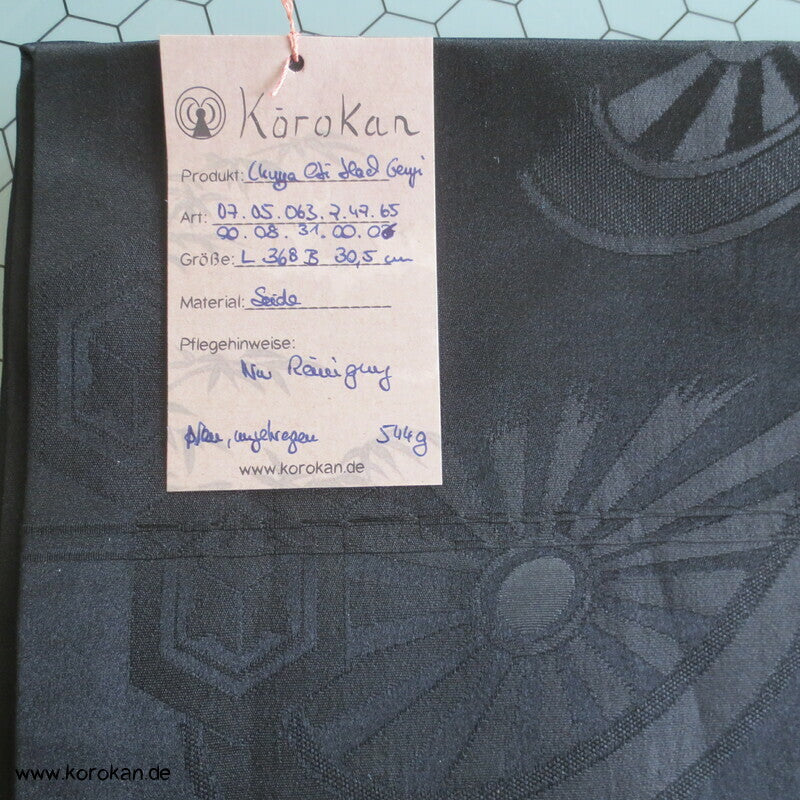 Kōrokan
Produkt:
Art: 07.05.063.7.47.65
00.08.31.00.06
Größe: L 368 B 30,5 cm
Material: Seide
Pflegehinweise:
Nur Reinigung
Neu, ungetragen 544g
www.korokan.de
www.korokan.de